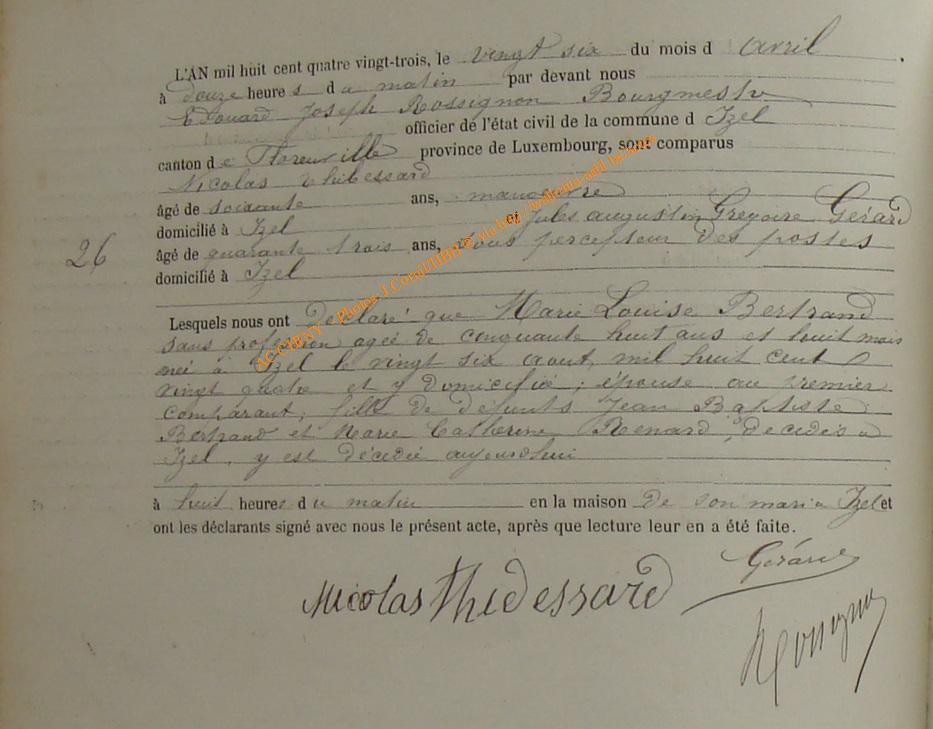 L'AN mil huit cent quatre vingt-trois, le vingt six du mois d avril
à douze heures du matin par devant nous
Edouard Joseph Rossignon Bourgmestre
officier de l'état civil de la commune d Izel
canton de Florenville province de Luxembourg, sont comparus
Nicolas Thibessard
âgé de soixante ans, manoeuvre
domicilié à Izel et Jules augustin Grégoire Gérard
26
âgé de quarante trois ans, sous percepteur des postes
domicilié à Izel
Lesquels nous ont déclaré que Marie Louise Bertrand
sans profession agée de cinquante huit ans et huit mois
née à Izel le vingt six aout mil huit cent
vingt quatre et y domiciliée; épouse au premier
comparant, fille de défunts Jean Baptiste
Bertrand et Marie Catherine Renard, décédés à
Izel, y est décédée aujourdhui
à huit heures du matin en la maison de son mari à Izel et
ont les déclarants signé avec nous le présent acte, après que lecture leur en a été faite.
Gérard
Nicolas Thibessard
Rossignon